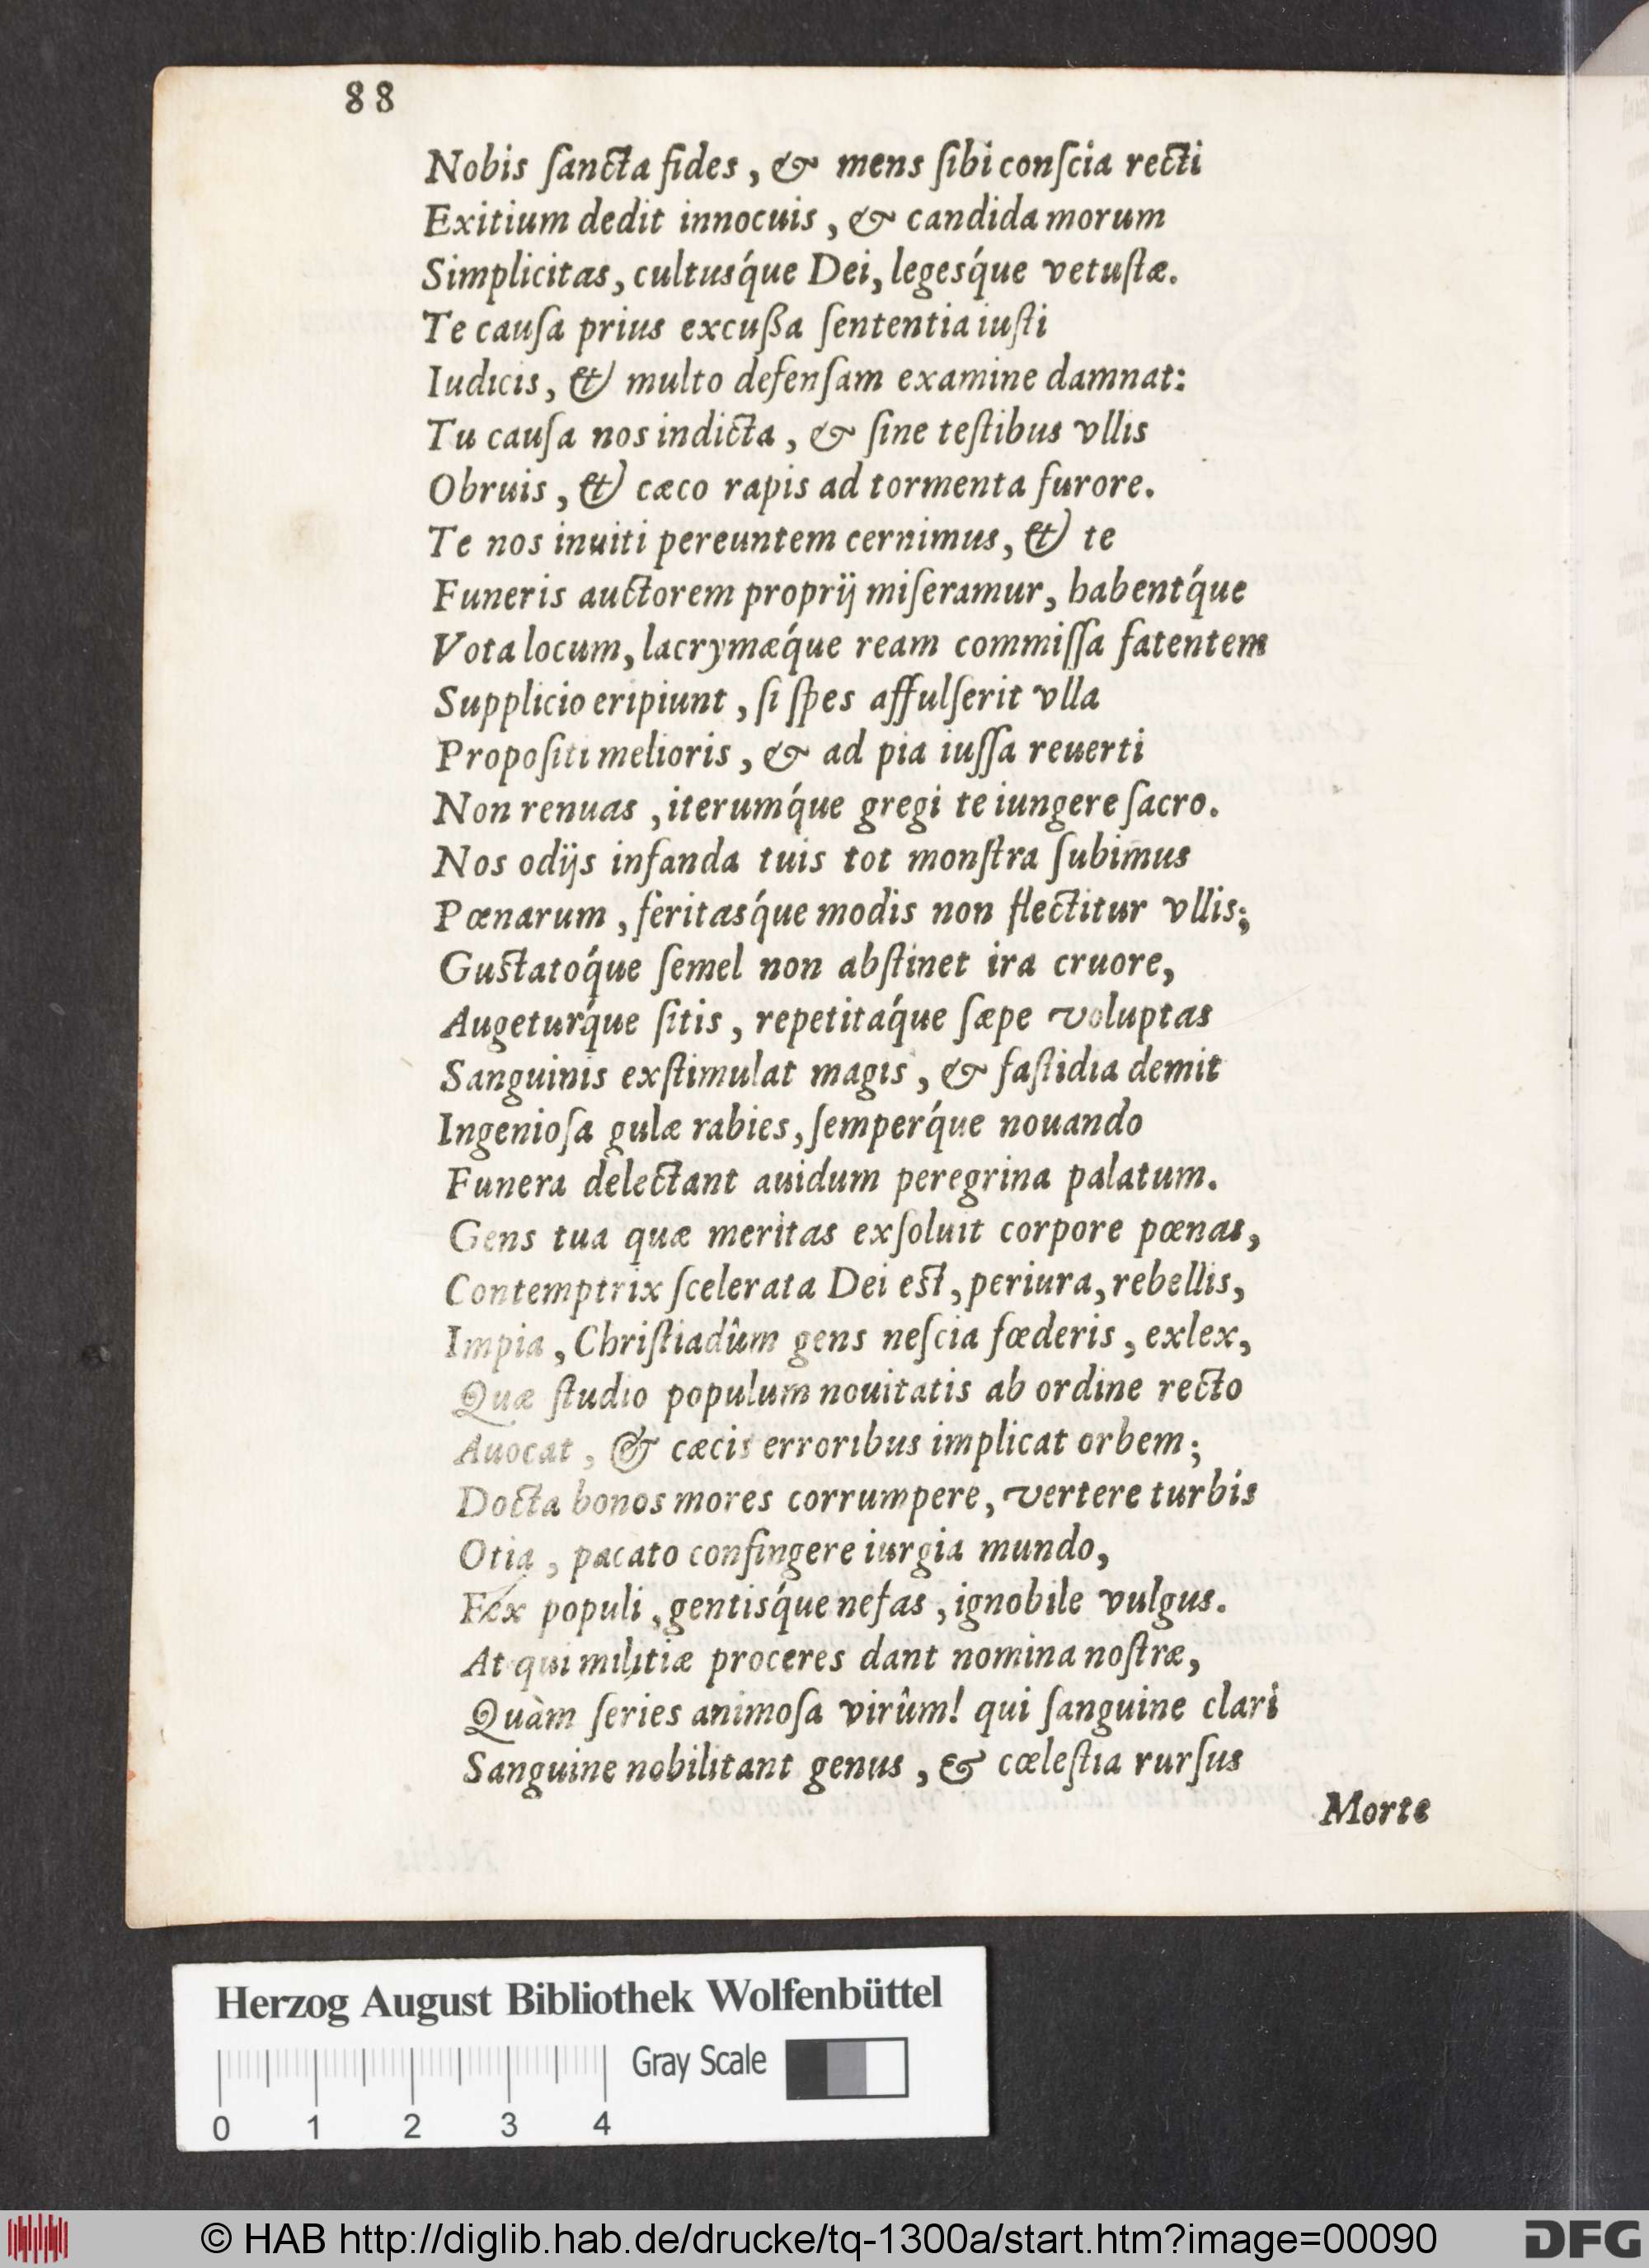 88
Nobis ſancta fides, & mens ſibi conſcia recti
Exitium dedit innocuis, & candida morum
Simplicitas, cultusq́ue Dei, legesq́ue vetuſtæ.
Te cauſa prius excußa ſententia iuſti
Iudicis, & multo defenſam examine damnat:
Tu cauſa nos indicta, & ſine teſtibus vllis
Obruis, & cæco rapis ad tormenta furore.
Te nos inuiti pereuntem cernimus, & te
Funeris auctorem proprij miſeramur, habentq́ue
Vota locum, lacrymæq́ue ream commiſſa fatentem
Supplicio eripiunt, ſi ſpes affulſerit vlla
Propoſiti melioris, & ad pia iuſſa reuerti
Non renuas, iterumq́ue gregi te iungere ſacro.
Nos odijs infanda tuis tot monſtra ſubimus
Pœnarum, feritasq́ue modis non flectitur vllis;
Guſtatoq́ue ſemel non abſtinet ira cruore,
Augeturq́ue ſitis, repetitaq́ue ſæpe voluptas
Sanguinis exſtimulat magis, & faſtidia demit
Ingenioſa gulæ rabies, ſemperq́ue nouando
Funera delectant auidum peregrina palatum.
Gens tua quæ meritas exſoluit corpore pœnas,
Contemptrix ſcelerata Dei eſt, periura, rebellis,
Impia, Chriſtiadûm gens neſcia fœderis, exlex,
Quæ ſtudio populum nouitatis ab ordine recto
Auocat, & cæcis erroribus implicat orbem;
Docta bonos mores corrumpere, vertere turbis
Otia, pacato confingere iurgia mundo,
Fex populi, gentisq́ue nefas, ignobile vulgus.
At qui militiæ proceres dant nomina noſtræ,
Quàm ſeries animoſa virûm! qui ſanguine clari
Sanguine nobilitant genus, & cœleſtia rurſus
Morte
Herzog August Bibliothek Wolfenbüttel
Gray Scale
0 1 2 3 4
© HAB http://diglib.hab.de/drucke/tq-1300a/start.htm?image=00090
DFG